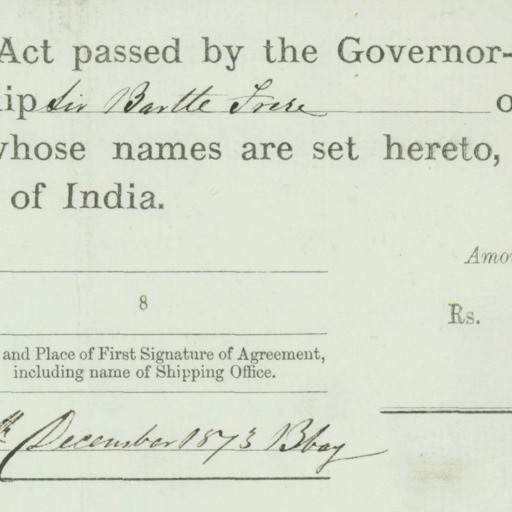 Act passed by the Governor-
ip Sir Bartle Frere o
whose names are set hereto,
of India.
Amou
8
Rs.
and Place of First Signature of Agreement,
including name of Shipping Office.
th December 1873 Bbay